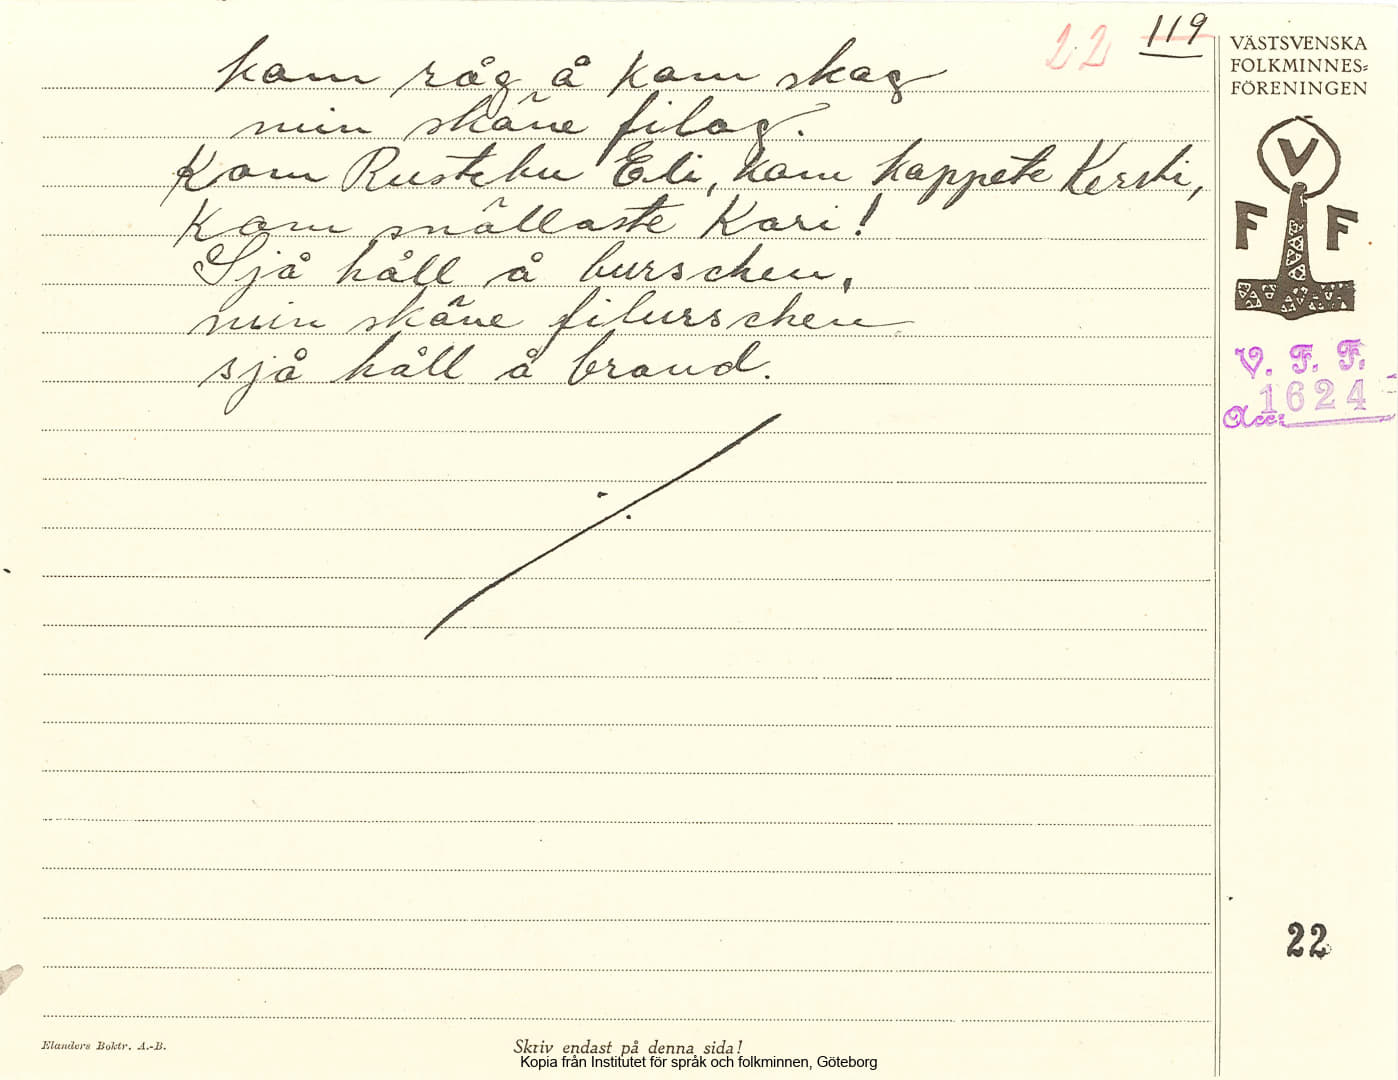 22 119
kom råg å kom skag
min skäne filag.
Kom Rustebu Eli, kom kappete Kersti,
Kom snällaste Kari!
Sjå håll å burschen,
min skäne filurschen
sjå håll å brand.
VÄSTSVENSKA
FOLKMINNES-
FÖRENINGEN
V
F F
V. F. F.
1624
Acc:
22
Elanders Boktr. A.-B.
Skriv endast på denna sida!
Kopia från Institutet för språk och folkminnen, Göteborg